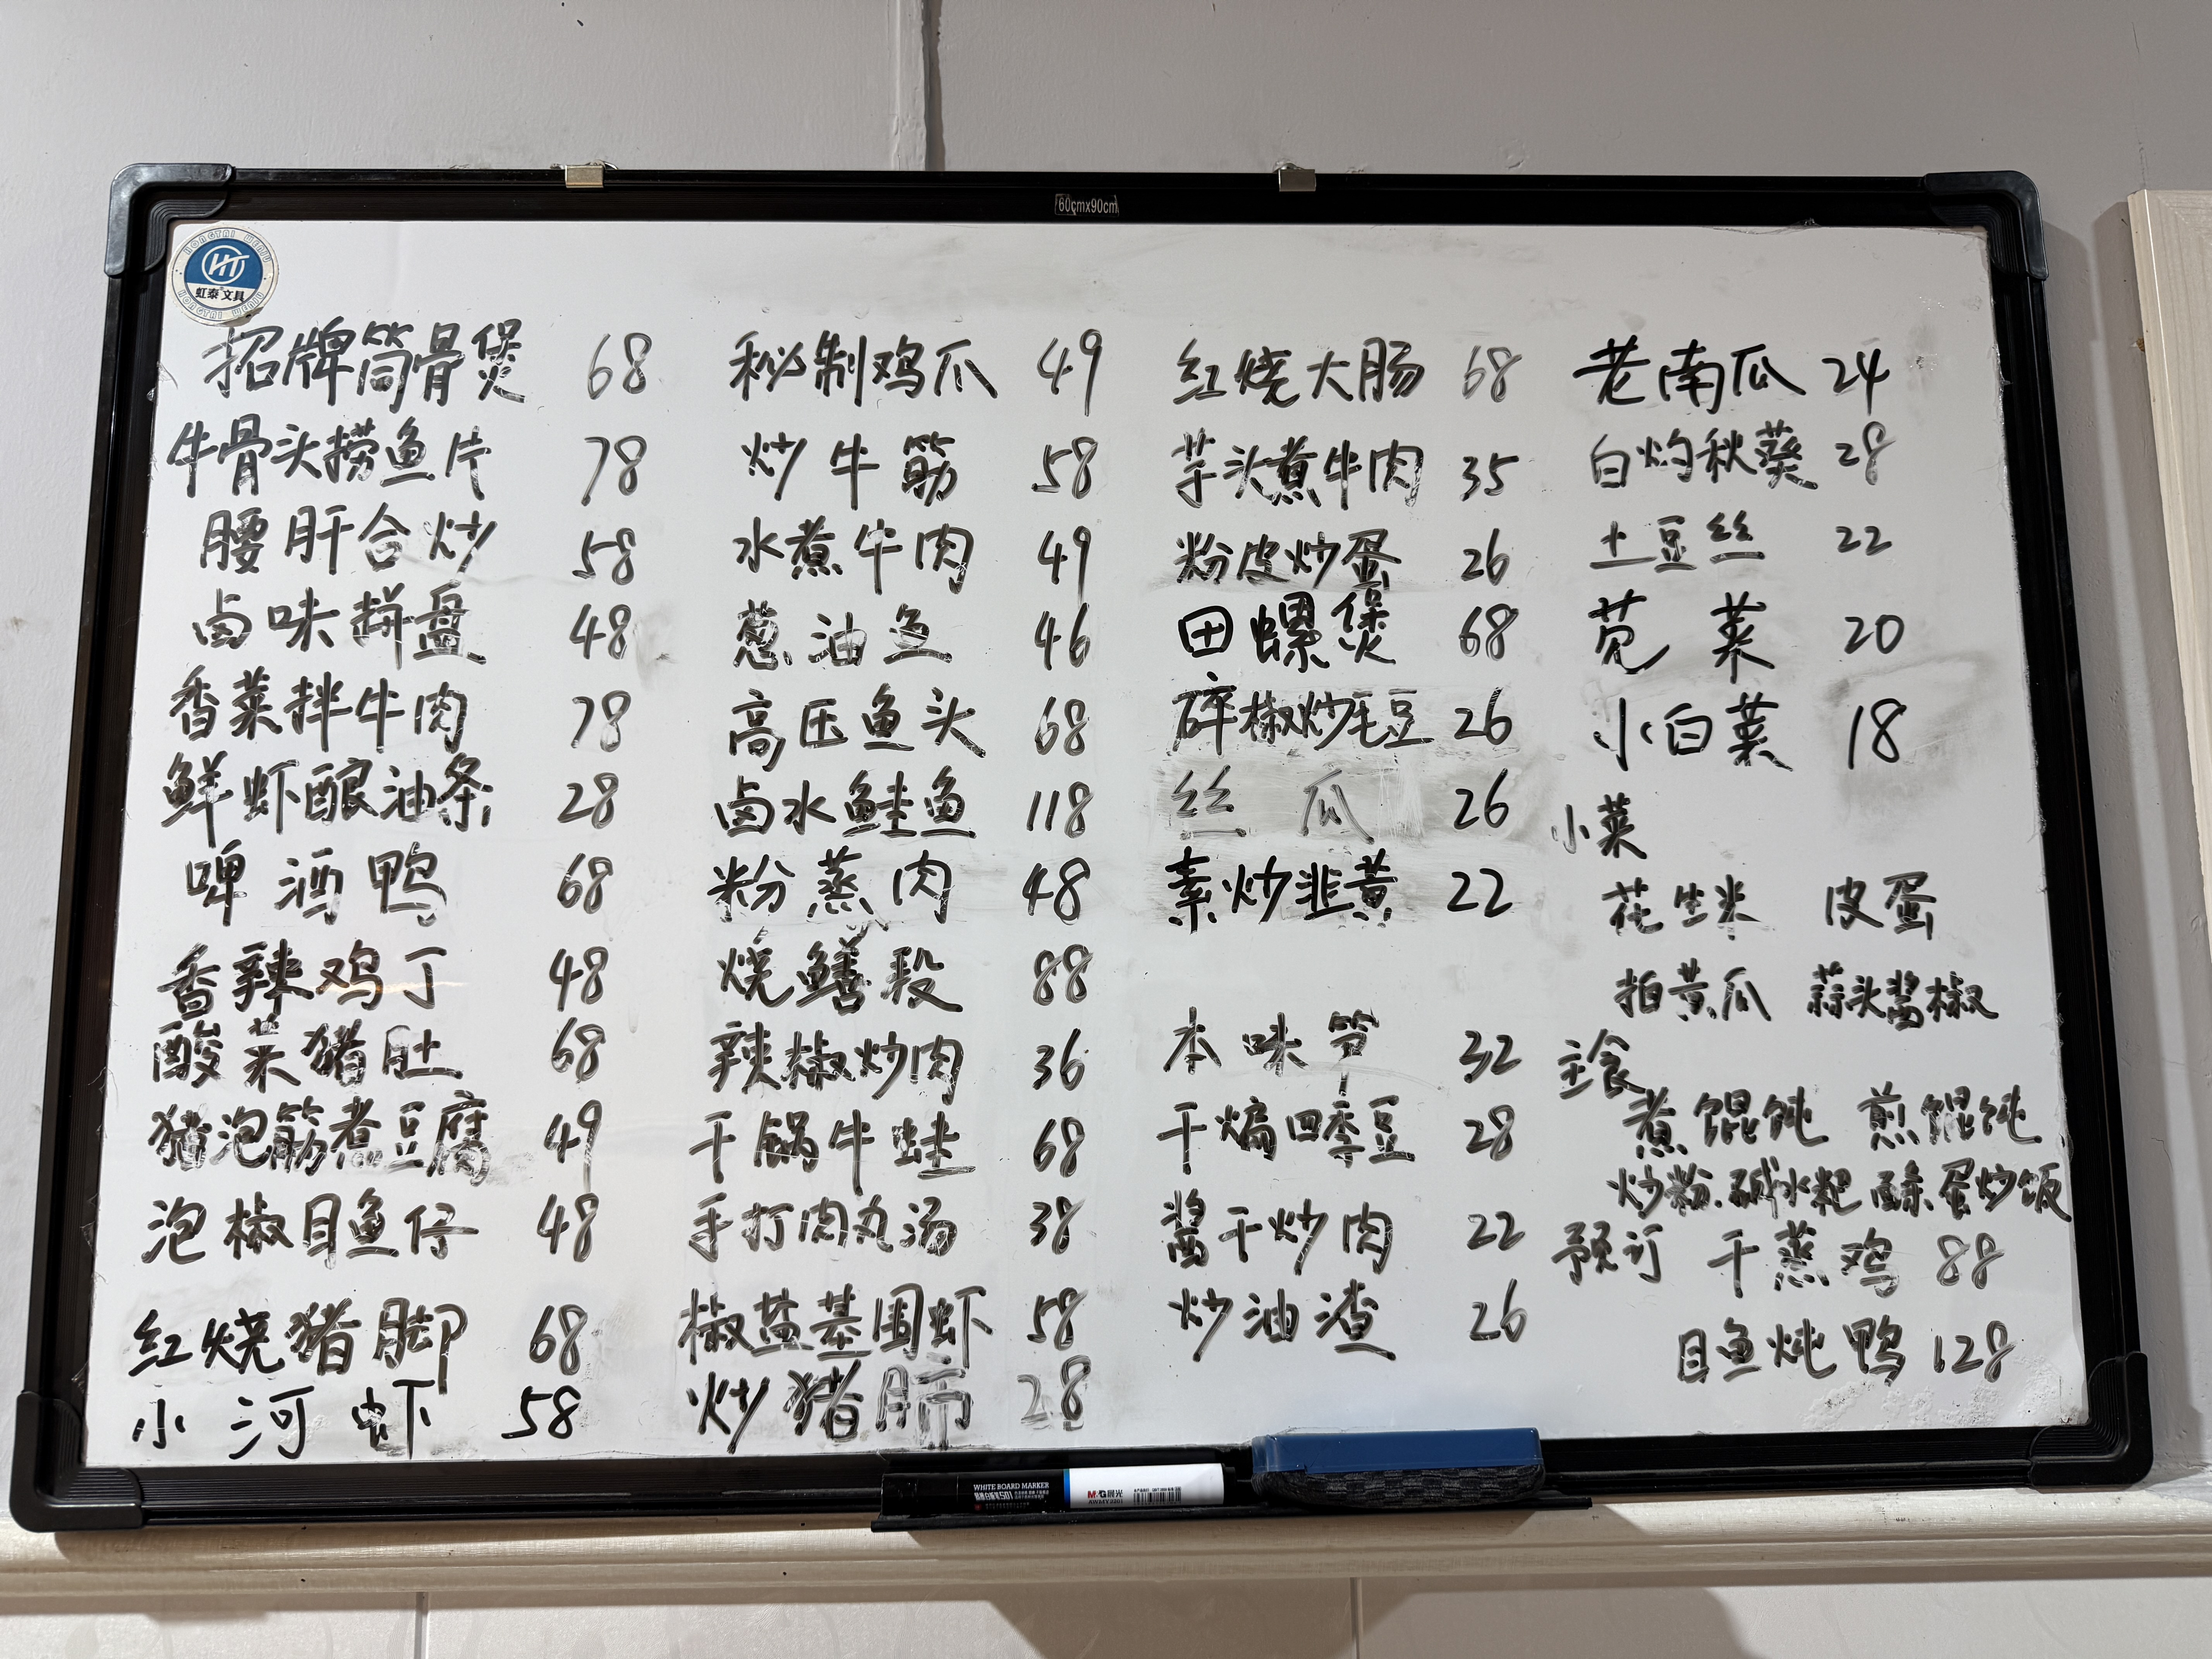 60cmx90cm
HONGTAI WENJU
HT
虹泰文具
招牌筒骨煲 68
牛骨头捞鱼片 78
腰肝合炒 58
卤味拼盘 48
香菜拌牛肉 78
鲜虾酿油条 28
啤酒鸭 68
香辣鸡丁 48
酸菜猪肚 68
猪泡筋煮豆腐 49
泡椒目鱼仔 48
红烧猪脚 68
小河虾 58
秘制鸡爪 49
炒牛筋 58
水煮牛肉 49
葱油鱼 46
高压鱼头 68
卤水鲑鱼 118
粉蒸肉 48
烧鳝段 88
辣椒炒肉 36
干锅牛蛙 68
手打肉丸汤 38
椒盐基围虾 58
炒猪肺 28
红烧大肠 68
芋头煮牛肉 35
粉皮炒蛋 26
田螺煲 68
碎椒炒毛豆 26
丝瓜 26
素炒韭黄 22
本味笋 32
干煸四季豆 28
酱干炒肉 22
炒油渣 26
老南瓜 24
白灼秋葵 28
土豆丝 22
苋菜 20
小白菜 18
小菜
花生米 皮蛋
拍黄瓜 蒜头酱椒
主食
煮馄饨 煎馄饨
炒粉.碱水粑 蛋炒饭
预订 干蒸鸡 88
目鱼炖鸭 128
WHITE BOARD MARKER
M&G晨光